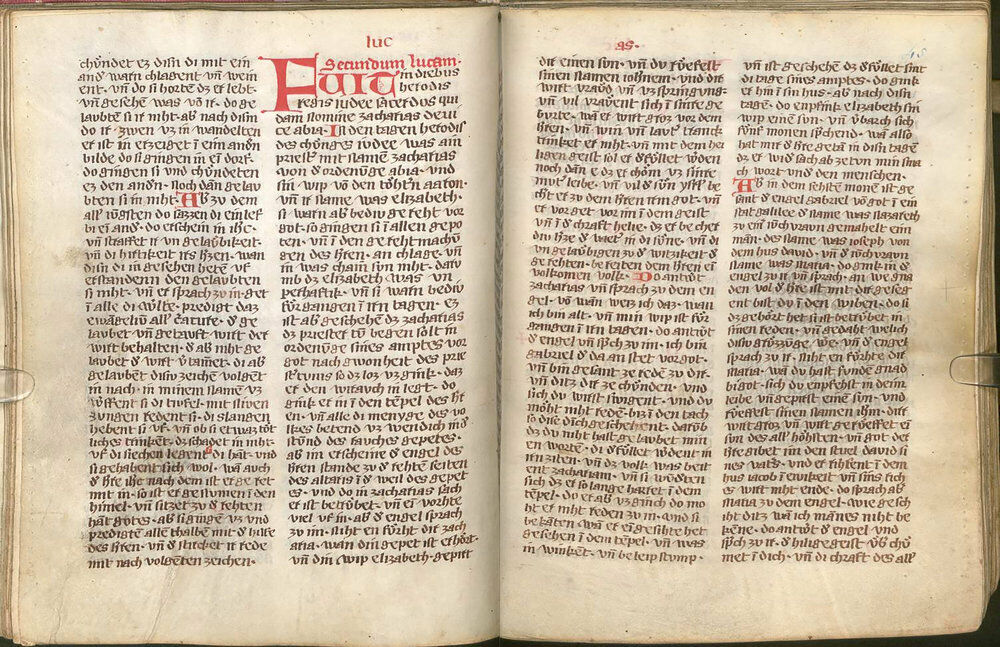 luc
chv̊ndet ez disn di mit ein
and' warn chlagent · vn̄ wein
ent · vn̄ do si horten dz er lebt ·
vn̄ gesehen was vō ir · do ge
laubten si ir niht · ab nach disn
do ir · zwen vz in wandelten
er ist in erzeiget ī eim andn̄
bilde do si gingen in ei dorf ·
do gingen si vnd chv̊ndeten
ez den andn̄ · noch dān gelau
bten si in niht · Ab zv dem
all' ivgsten do sazzen di einlef
bi ei and · do erschein in ihc ·
vn̄ straffet ir vngelav̊bikeit ·
vn̄ di hirtikeit irs h'zen · wan
disn di in gesehen hete v̄r
erstandenn den gelaubten
si niht · vn̄ er sprach zv in · get
ī alle di w'lte · predigt daz
ewāgeliū all' c'ature · d' ge
laubet vn̄ getauft wirt der
wirt behalten · d' ab niht ge
laubet d' wirt v'tamet · di ab
gelaubet disiv zeichen volgent
in nach · in minem namen vz
w'ffent si di tivfel · mit niwen
zungen redent si · di slangen
hebent si v̄f · vn̄ ob si etwaz tot
liches trinkēt · dz schadet in niht ·
v̄f di siechen legent di hāt · vnd
si gehabent sich wol · wā auch
d' h're ihc nach dem ist er ge ret
mit in · so ist er gestigen ī den
himel · vn̄ sitzet zv d' rehten
hāt gotes · ab si gingē vz vnd
predigtē alle thalbē mit d' hilfe
des h'ren · vn̄ d' stircket ir rede
mit nach volgtēn zeichen ·
Secundum lucam ·
Fuit in diebus
herodis
regis iudee sacerdos qui
dam nomine zacharias de ui
ce abia · In den tagen herodis
des chv̊nges iudee was ain
priest' mit namē zacharias
von d' ordenv̊ge abia · vnd
sin wip vō den tōht'n aaron ·
vn̄ ir name was elizabeth ·
si warn ab bediv ge reht vor
got · so gingen si ī allen gepo
ten · vn̄ ī den ge reht machū
gen des h'ren · an chlage · vn̄
in was chain sun niht · dar v̄
mb dz elizabeth was vn
perhaftik · vn̄ si warn bediv
fv̊r gangen ī irn tagen · ez
ist ab geschehen dz zacharias
dz priester tū begen solt in
ordenūge sines amptes vor
got nach gewonheit des prie
st'tums so dz loz vz gink · daz
er den wirauch in legt · do
gink er in ī den tēpel des h'r
en · vn̄ alle di menyge des vo
lkes betend vz wendich in d'
stūnd des rauches gepetes ·
ab im erscheine d' engel des
h'ren stande zv d' rehtē seiten
des altaris ī d' weil des gepet
es · vnd do in zacharias sach
er ist betrv̊bet · vn̄ ein vorhte
viel v̄f in · ab d' engel sprach
zv im · niht en fv̊rht dir zach
aria · wan din gepet ist erhört ·
vn̄ din wip elizabeth · gepirt
as ·
dir einen sun · vn̄ du rv̊efest
sinen namen iohn̄em · vnd dir
wirt vraud vn̄ vz springv̄ng ·
vn̄ vil vravent sich ī sinre ge
bv̊rte · wā er wirt groz vor dem
h'ren · vn̄ win vn̄ laut' tranck
trinket er niht · vn̄ mit dem hei
ligen geist sol er d'fv̊llet w'den
noch dān e dz er chōm vz sinre
mut' leibe · vn̄ vil d' sūn ysrl be
ch't er zv dem h'ren irm got · vn̄
er vor get vor im ī dem geist
vn̄ ī d' chraft helie · dz er be cher
div h'ze d' vater in di sv̊ne · vn̄ di
vn gelav̊bigen zv d' witzikeit d'
ge rehten · be reiten dem h'ren ei
volkomen volk · Do antw't
zacharias vn̄ sprach zv dem en
gel · vō wān weiz ich daz · wan
ich bin alt · vn̄ min wip ist fv̊r
gangen ī irn tagen · do antw't
d' engel vn̄ sp'ch zv im · ich bin
gabriel d' da an stet vor got ·
vn̄ bin gesant ze reden zv dir ·
vn̄ ditz dir ze chv̊nden · vnd
sich du wirst swigent · vnd du
möht niht reden · biz ī den tach
so dise dinch geschehent · darūb
dz du niht hast gelaubet min
en worten · di d'fv̊llet w'dent in
irn ziten · vn̄ dz volk was beit
ent zachariam · vn̄ si wūd'ten
sich dz er so lange bartet ī dem
tēpel · do er ab vz ginch do mo
ht er niht reden zv in · vnd si
be kāten · wā er ei gesihte het
gesehen ī dem tēpel · vn̄ was
in winkēt · vn̄ be leip stump ·
vn̄ ist geschehē dz d'fv̊llet sint
di tage sines amptes · do gink
er hin ī sin hus · ab nach disn
tagē · do enpfink elizabeth sin
wip einē sun · vn̄ v'barch sich
fv̊nf monen sp'chend · wā also
hat mir d' h're getā in disn tagē
dz er wid' sach ab zetvn min sma
ch wort vnd den menschen ·
Ab in dem sehstē monē ist ge
sant d' engel gabriel vō got ī ein
stat galilee d' name was nazareth
zv ein' iūchvrawn gemahelt eim
mān · des name was ioseph von
dem hus david · vn̄ d' iūchvrawn
name was maria · do gink in d'
engel zv ir vn̄ sprach · aue gna
den vol d' h're ist mit dir geseg
ent bist du ī den wiben · do si
dz gehōrt het si ist betrv̊bet in
sinen reden · vn̄ gedaht welich
disiv grv̊zzūge w'e · vn̄ d' engel
sprach zv ir · niht en fv̊rhte dir
maria · wā du hast fundē gnad
bi got · sich du enpfehst in dem
leibe · vn̄ gepirst einē sun · vnd
rv̊effest sinen namen ihm · dirr
wirt groz · vn̄ wirt gerv̊effet ei
sun des all' höhsten · vn̄ got der
h're gibet im den stuel david si
nes vat's · vnd er richsent ī dem
hus iacob ī ewikeit · vn̄ sins rich
es wirt niht ende · do sprach ab
maria zv dem engel · wie gesch
iht ditz wā ich mānes niht be
kēne · do antw't d' engel vnd
sp'ch zv ir · d' hilige geist v̊b' chv̊
met ī dich · vn̄ di chraft des all'